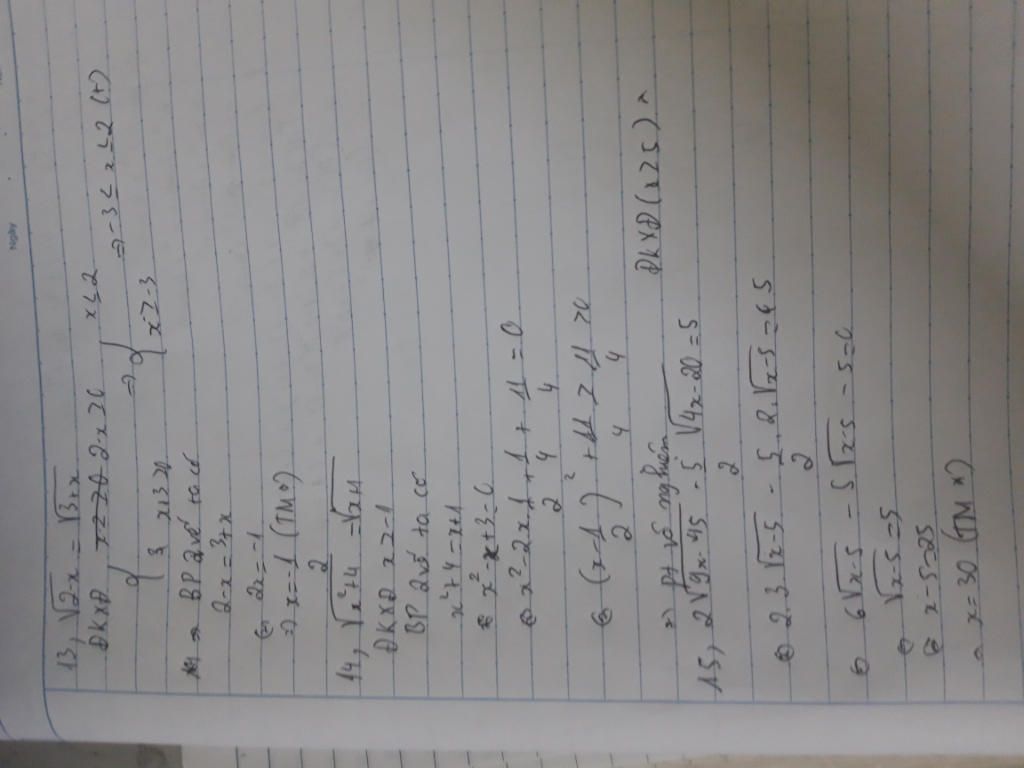 Ngày
13, √2-x = √3+x
ĐKXĐ 2-x≥0 => x≤2 => -3≤x≤2 (*)
3+x≥0 x≥-3
=> BP 2 vế ta có
2-x=3+x
2x=-1
=> x=-1/2 (TM*)
14, √x²+4 = √x+1
ĐKXĐ x≥-1
BP 2 vế ta có
x²+4=x+1
x²-x+3=0
x²-2x.1/2+1/4+11/4=0
(x-1/2)²+11/4≥11/4>0
=> pt vô nghiệm
15, 2√9x-45 - 5/2 √4x-20 = 5 ĐKXĐ (x≥5) *
2.3√x-5 - 5/2.2√x-5 = 5
6√x-5 - 5√x-5 - 5=0
√x-5=5
x-5=25
x=30 (TM *)